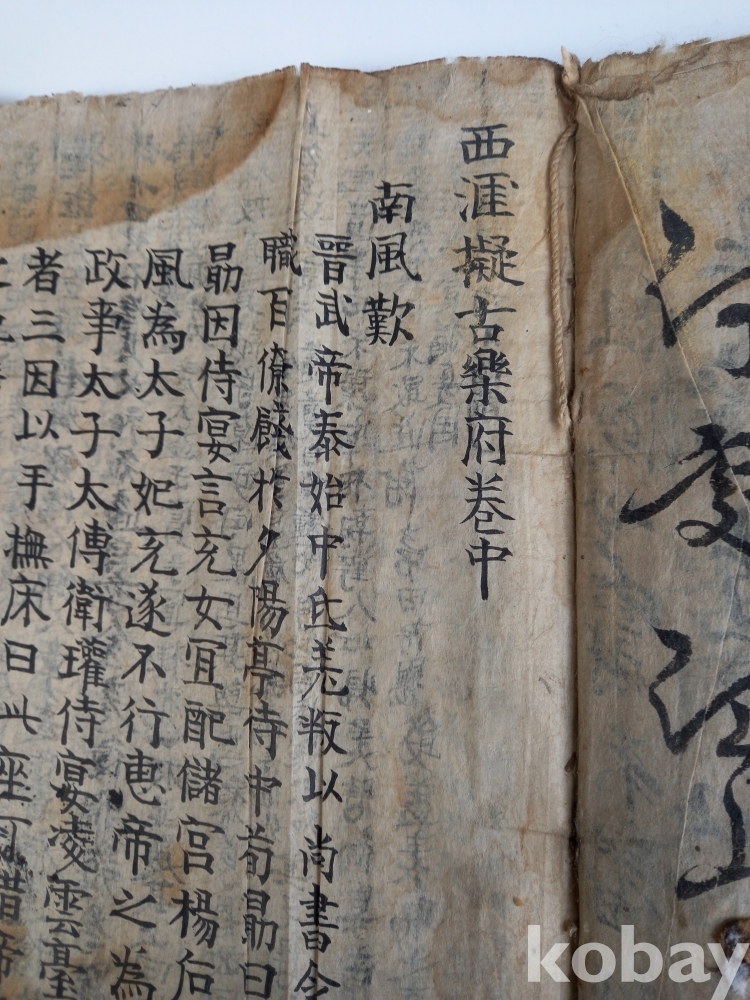 西涯擬古樂府卷中
南風歎
晉武帝泰始中氐羌叛以尚書令
職百僚餞於夕陽亭侍中荀勗曰
勗因侍宴言充女冝配儲宮楊后
風為太子妃充遂不行恵帝之為
政事太子太傅衛瓘侍宴凌雲臺
者三因以手撫床曰此座可惜帝
kobay